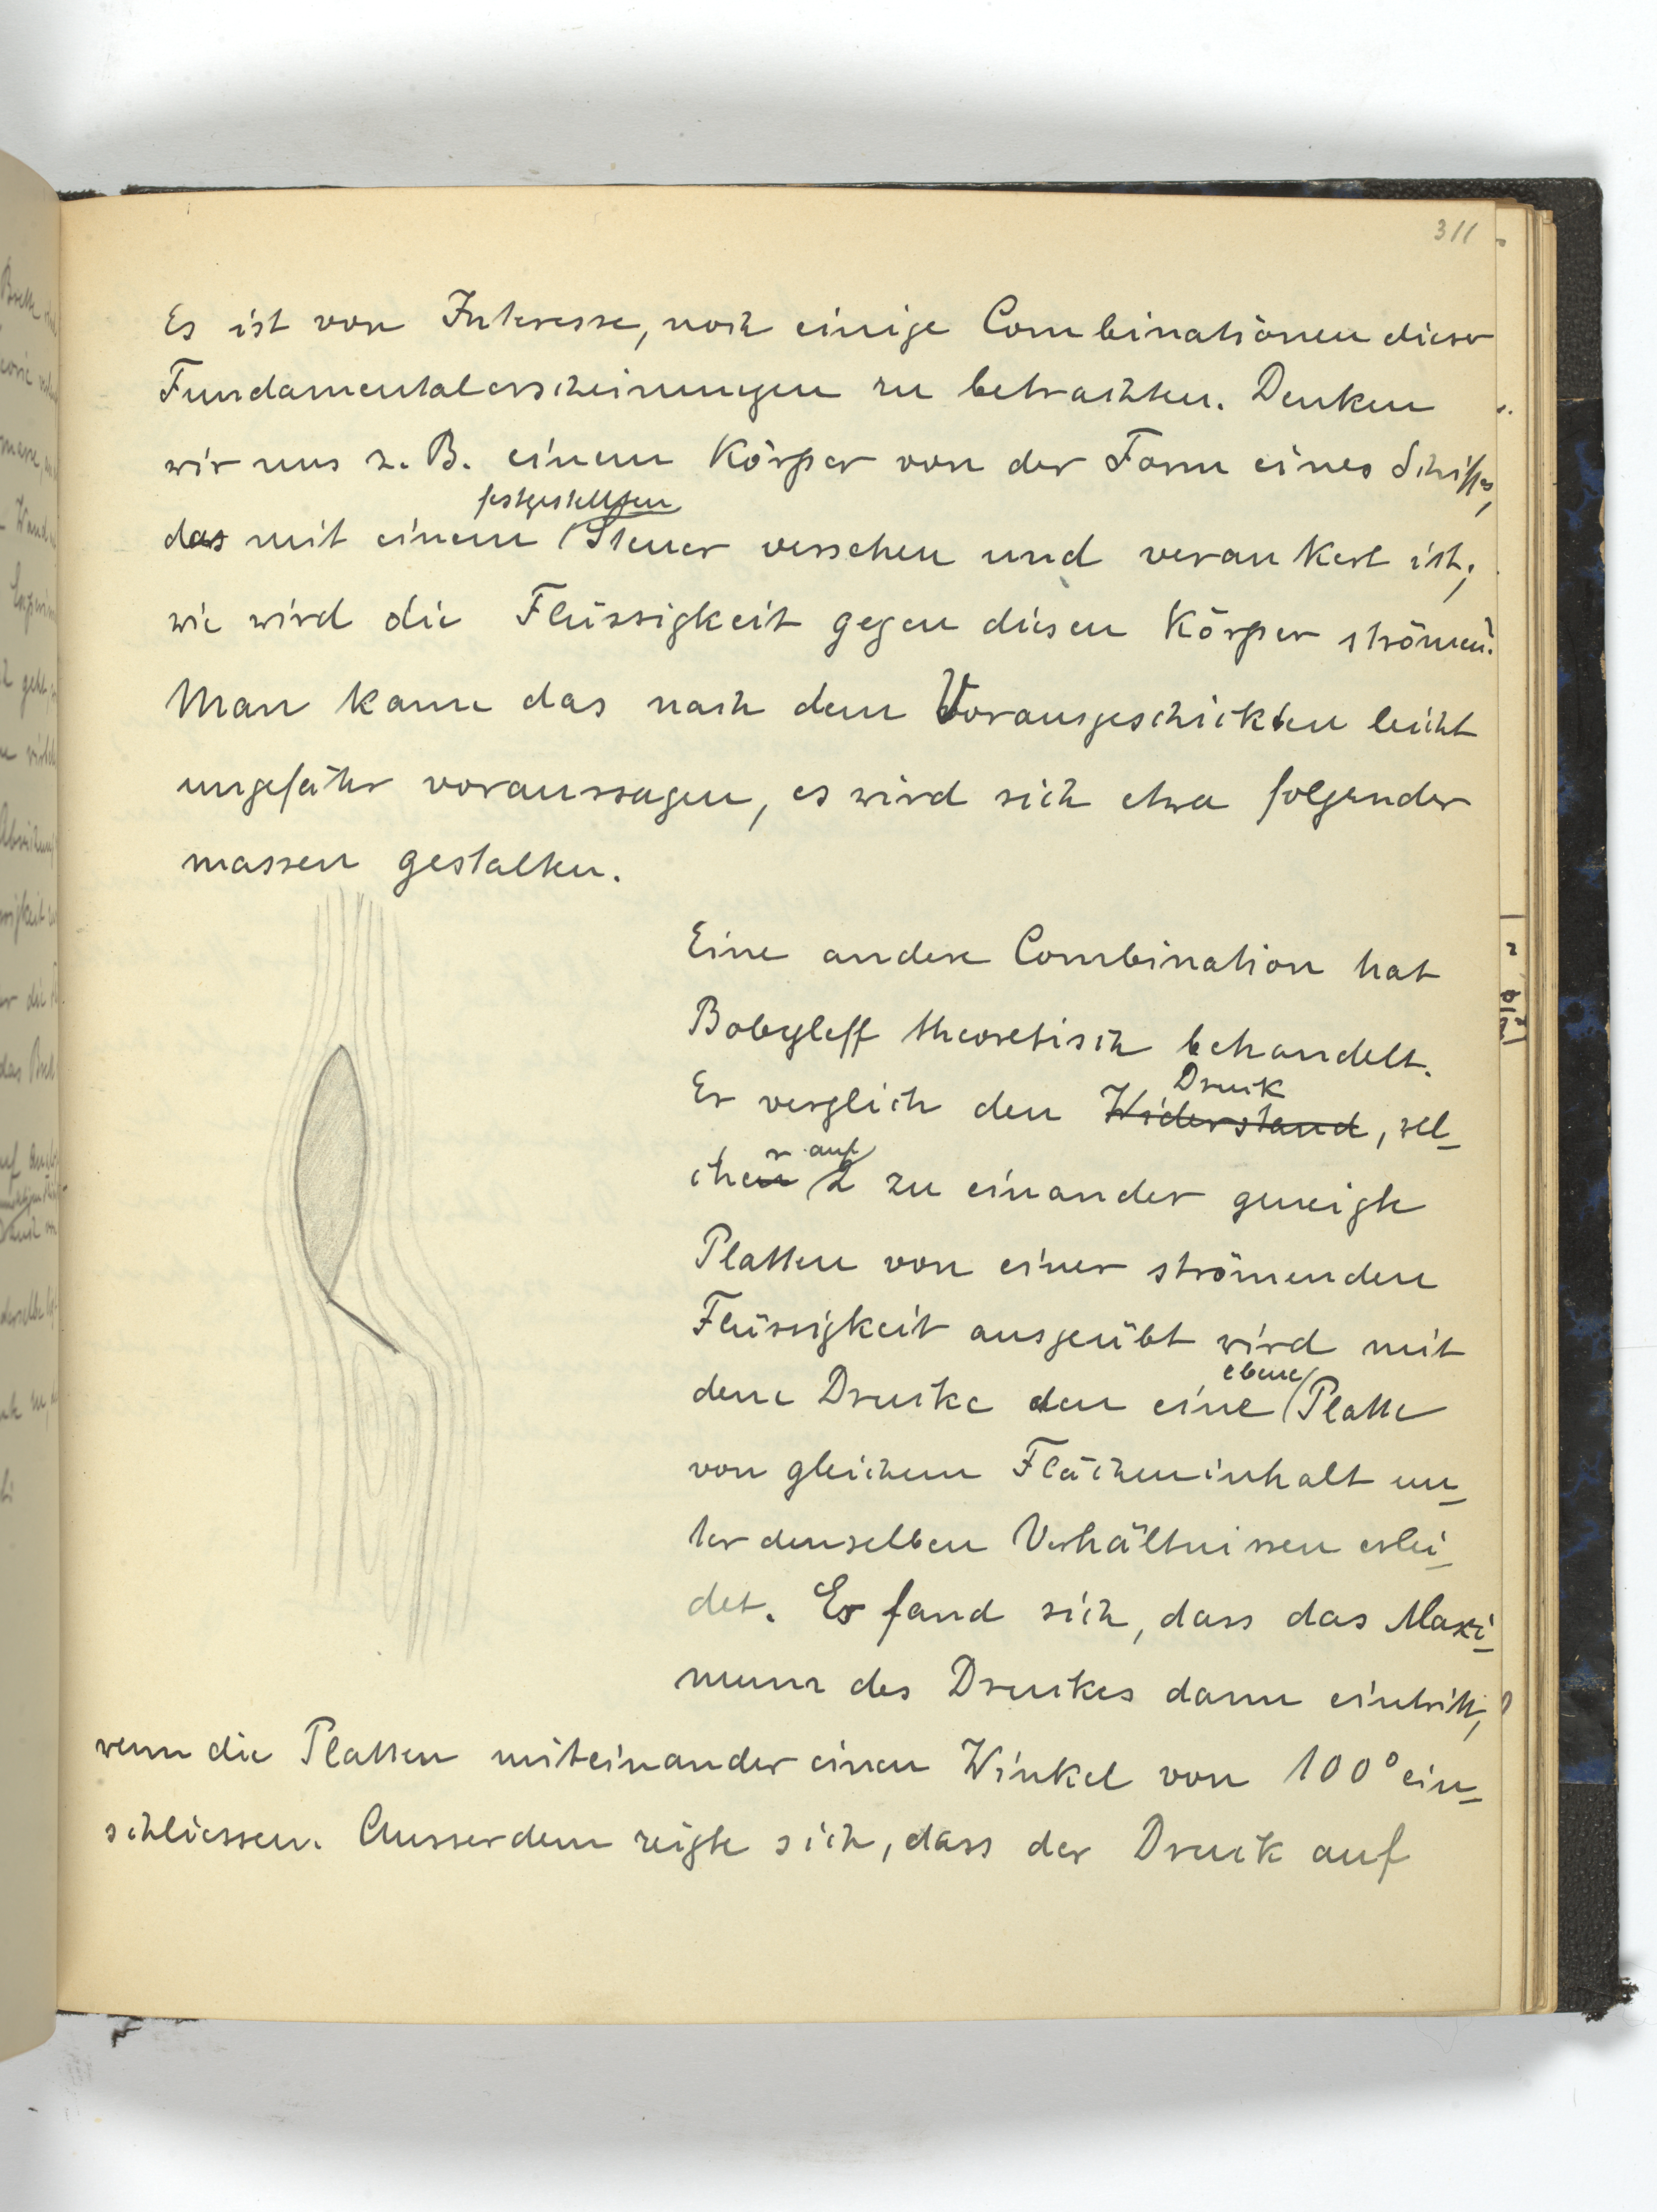 311
Es ist von Interesse, noch einige Combinationen dieser
Fundamentalerscheinungen zu betrachten. Denken
wir uns z. B. einem Körper von der Form eines Schiffes,
festgestellten
das mit einem Steuer versehen und verankert ist,
wie wird die Flüssigkeit gegen diesen Körper strömen?
Man kann das nach dem Vorausgeschickten leicht
ungefähr voraussagen, es wird sich etwa folgender
massen gestalten.
Eine andere Combination hat
Bobyleff theoretisch behandelt.
Druck
Er verglich den Widerstand, wel-
r auf
chen 2 zu einander geneigte
Platten von einer strömenden
Flüssigkeit ausgeübt wird mit
ebene
dem Drucke den eine Platte
von gleichem Flächeninhalt un-
ter denselben Verhältnissen erlei-
det. Es fand sich, dass das Maxi-
mum des Druckes dann eintritt,
wenn die Platten miteinander einen Winkel von 100° ein-
schliessen. Ausserdem zeigte sich, dass der Druck auf